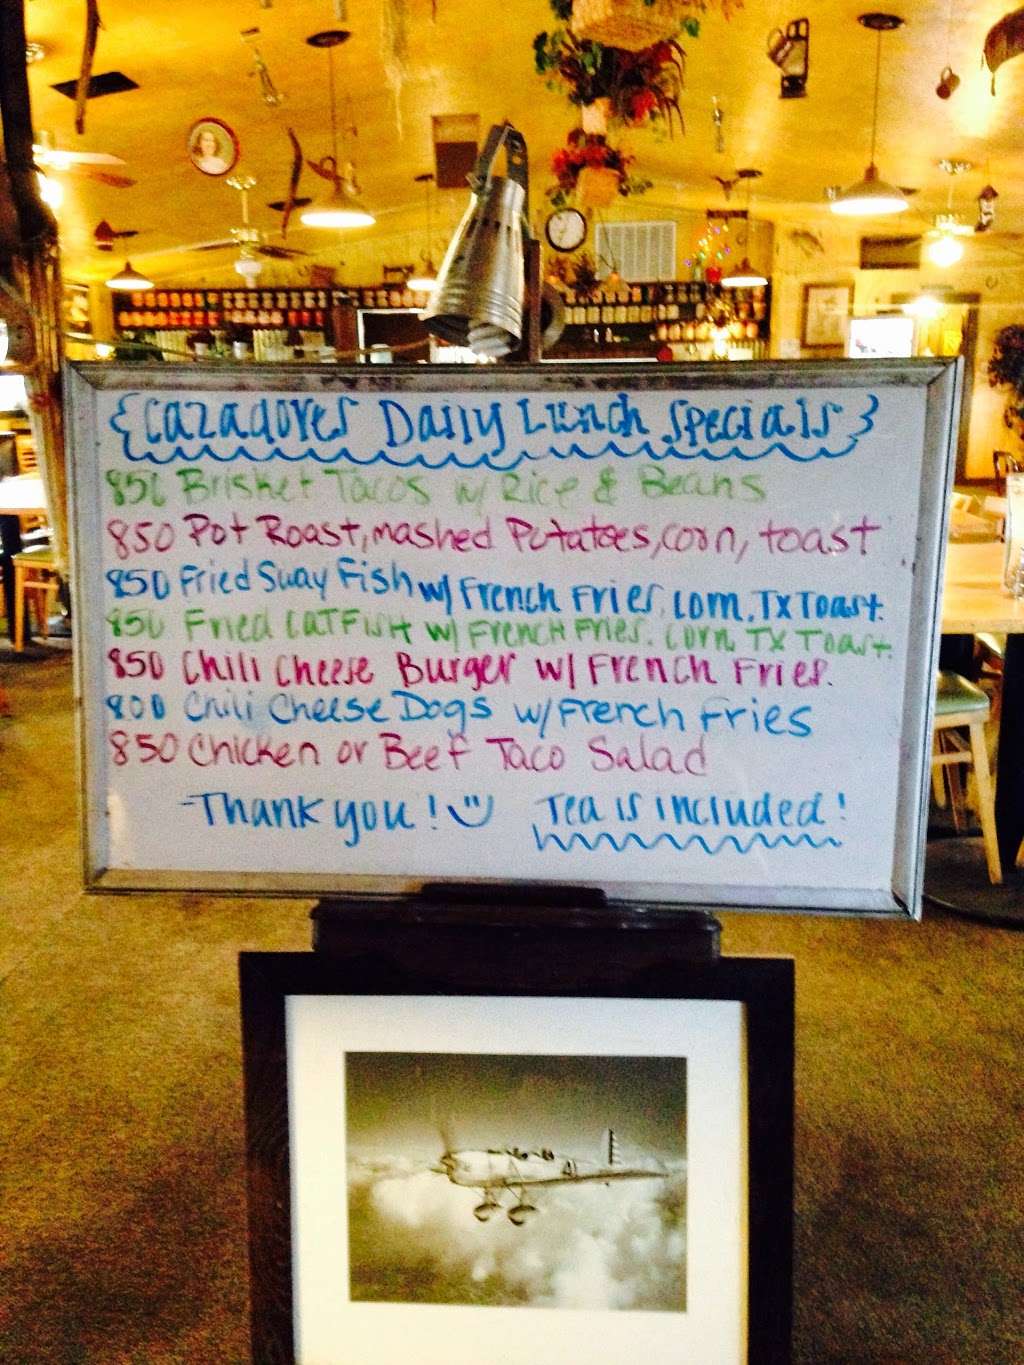 {Cazadores Daily Lunch Specials}
850 Brisket Tacos w/ Rice & Beans
850 Pot Roast, mashed Potatoes, corn, toast
850 Fried Suay Fish w/ French Fries, Corn, TX Toast.
850 Fried CatFish w/ French Fries. Corn TX Toast.
850 Chili Cheese Burger w/ French Fries.
800 Chili Cheese Dogs w/ French Fries
850 Chicken or Beef Taco Salad
-Thank you! Tea is included!